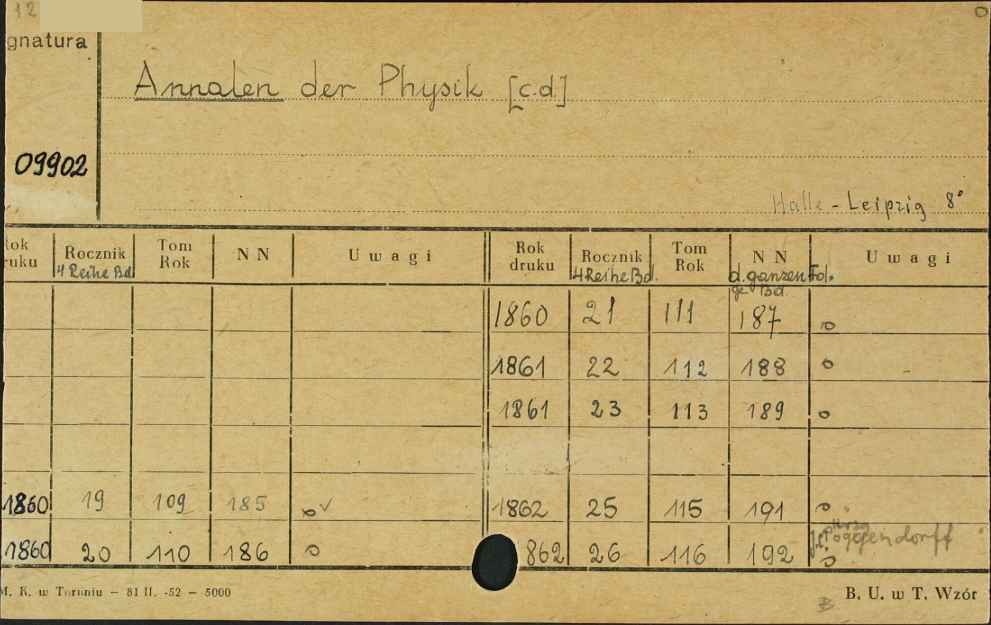 12
gnatura
Annalen der Physik [c.d.]
09902
Halle - Leipzig 8°
Rok druku Rocznik 4 Reihe Bd Tom Rok N N Uwagi
Rok druku Rocznik 4 Reihe Bd. Tom Rok N N d. ganzen Fol. ge Bd. Uwagi
1860 21 111 187 o
1861 22 112 188 o
1861 23 113 189 o
1860 19 109 185 o ✓
1862 25 115 191 o
1860 20 110 186 o
862 26 116 192 o Hrsg Poggendorff
M. K. w Toruniu – 81 II. -52 – 5000
B. U. w T. Wzór
B